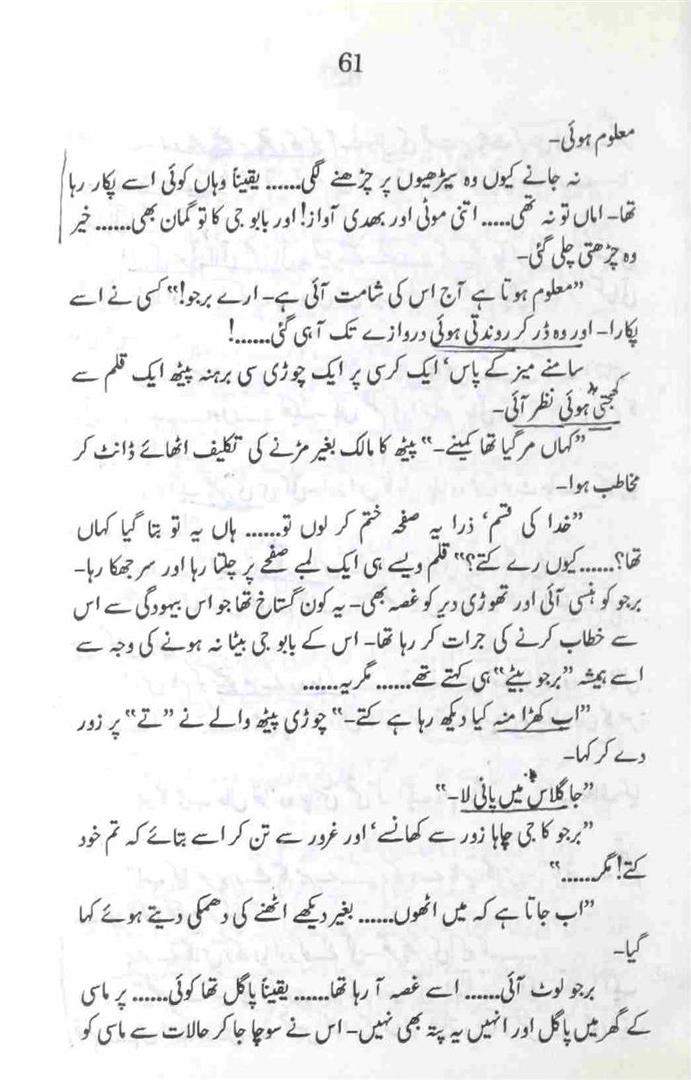 61
معلوم ہوئی۔
نہ جانے کیوں وہ سیڑھیوں پر چڑھنے لگی...... یقیناً وہاں کوئی اسے پکار رہا
تھا۔ اماں تو نہ تھی..... اتنی موٹی اور بھدی آواز! اور بابو جی کا تو گمان بھی...... خیر
وہ چڑھتی چلی گئی۔
”معلوم ہوتا ہے آج اس کی شامت آئی ہے۔ ارے برجو!“ کسی نے اسے
پکارا۔ اور وہ ڈر کر روندتی ہوئی دروازے تک آ ہی گئی......!
سامنے میز کے پاس‘ ایک کرسی پر ایک چوڑی سی برہنہ پیٹھ ایک قلم سے
کھجتی ہوئی نظر آئی۔
”کہاں مر گیا تھا کمینے۔“ پیٹھ کا مالک بغیر مڑنے کی تکلیف اٹھائے ڈانٹ کر
مخاطب ہوا۔
”خدا کی قسم‘ ذرا یہ صفحہ ختم کر لوں تو...... ہاں یہ تو بتا گیا کہاں
تھا؟...... کیوں رے کتے؟“ قلم ویسے ہی ایک لمبے صفحے پر چلتا رہا اور سر جھکا رہا۔
برجو کو ہنسی آئی اور تھوڑی دیر کو غصہ بھی۔ یہ کون گستاخ تھا جو اس بیہودگی سے اس
سے خطاب کرنے کی جرات کر رہا تھا۔ اس کے بابو جی بیٹا نہ ہونے کی وجہ سے
اسے ہمیشہ ”برجو بیٹے“ ہی کہتے تھے...... مگر یہ......
”اب کھڑا منہ کیا دیکھ رہا ہے کتے۔“ چوڑی پیٹھ والے نے ”تے“ پر زور
دے کر کہا۔
”جا گلاس میں پانی لا۔“
”برجو کا جی چاہا زور سے کھانسے‘ اور غرور سے تن کر اسے بتائے کہ تم خود
کتے! مگر......“
”اب جاتا ہے کہ میں اٹھوں...... بغیر دیکھے اٹھنے کی دھمکی دیتے ہوئے کہا
گیا۔
برجو لوٹ آئی...... اسے غصہ آ رہا تھا...... یقیناً پاگل تھا کوئی...... پر ماسی
کے گھر میں پاگل اور انہیں یہ پتہ بھی نہیں۔ اس نے سوچا جا کر حالات سے ماسی کو